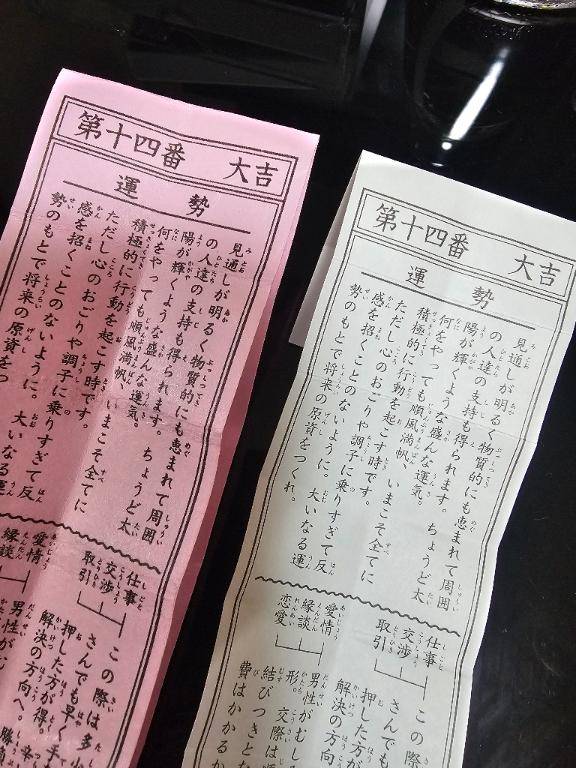 第十四番 大吉
運勢
見通しが明るく物質的にも恵まれて周囲
の人達の支持も得られます。ちょうど太
陽が輝くような盛んな運気。
何をやっても順風満帆、いまこそ全てに
積極的に行動を起こす時です。
ただし心のおごりや調子に乗りすぎて反
感を招くことのないように。大いなる運
勢のもとで将来の原資をつ
仕事
交渉
取引
この際は多少
さんでも早く手
押した方が得
解決の方向へ。
愛情
縁談
男性がむ
第十四番 大吉
運勢
見通しが明るく物質的にも恵まれて周囲
の人達の支持も得られます。ちょうど太
陽が輝くような盛んな運気。
何をやっても順風満帆、いまこそ全てに
積極的に行動を起こす時です。
ただし心のおごりや調子に乗りすぎて反
感を招くことのないように。大いなる運
勢のもとで将来の原資をつくれ。
仕事
交渉
取引
この際
さんでも
押した方が
解決の方
愛情
縁談
恋愛
男性がむし
形。交際は
結びつきと
費はかかるか